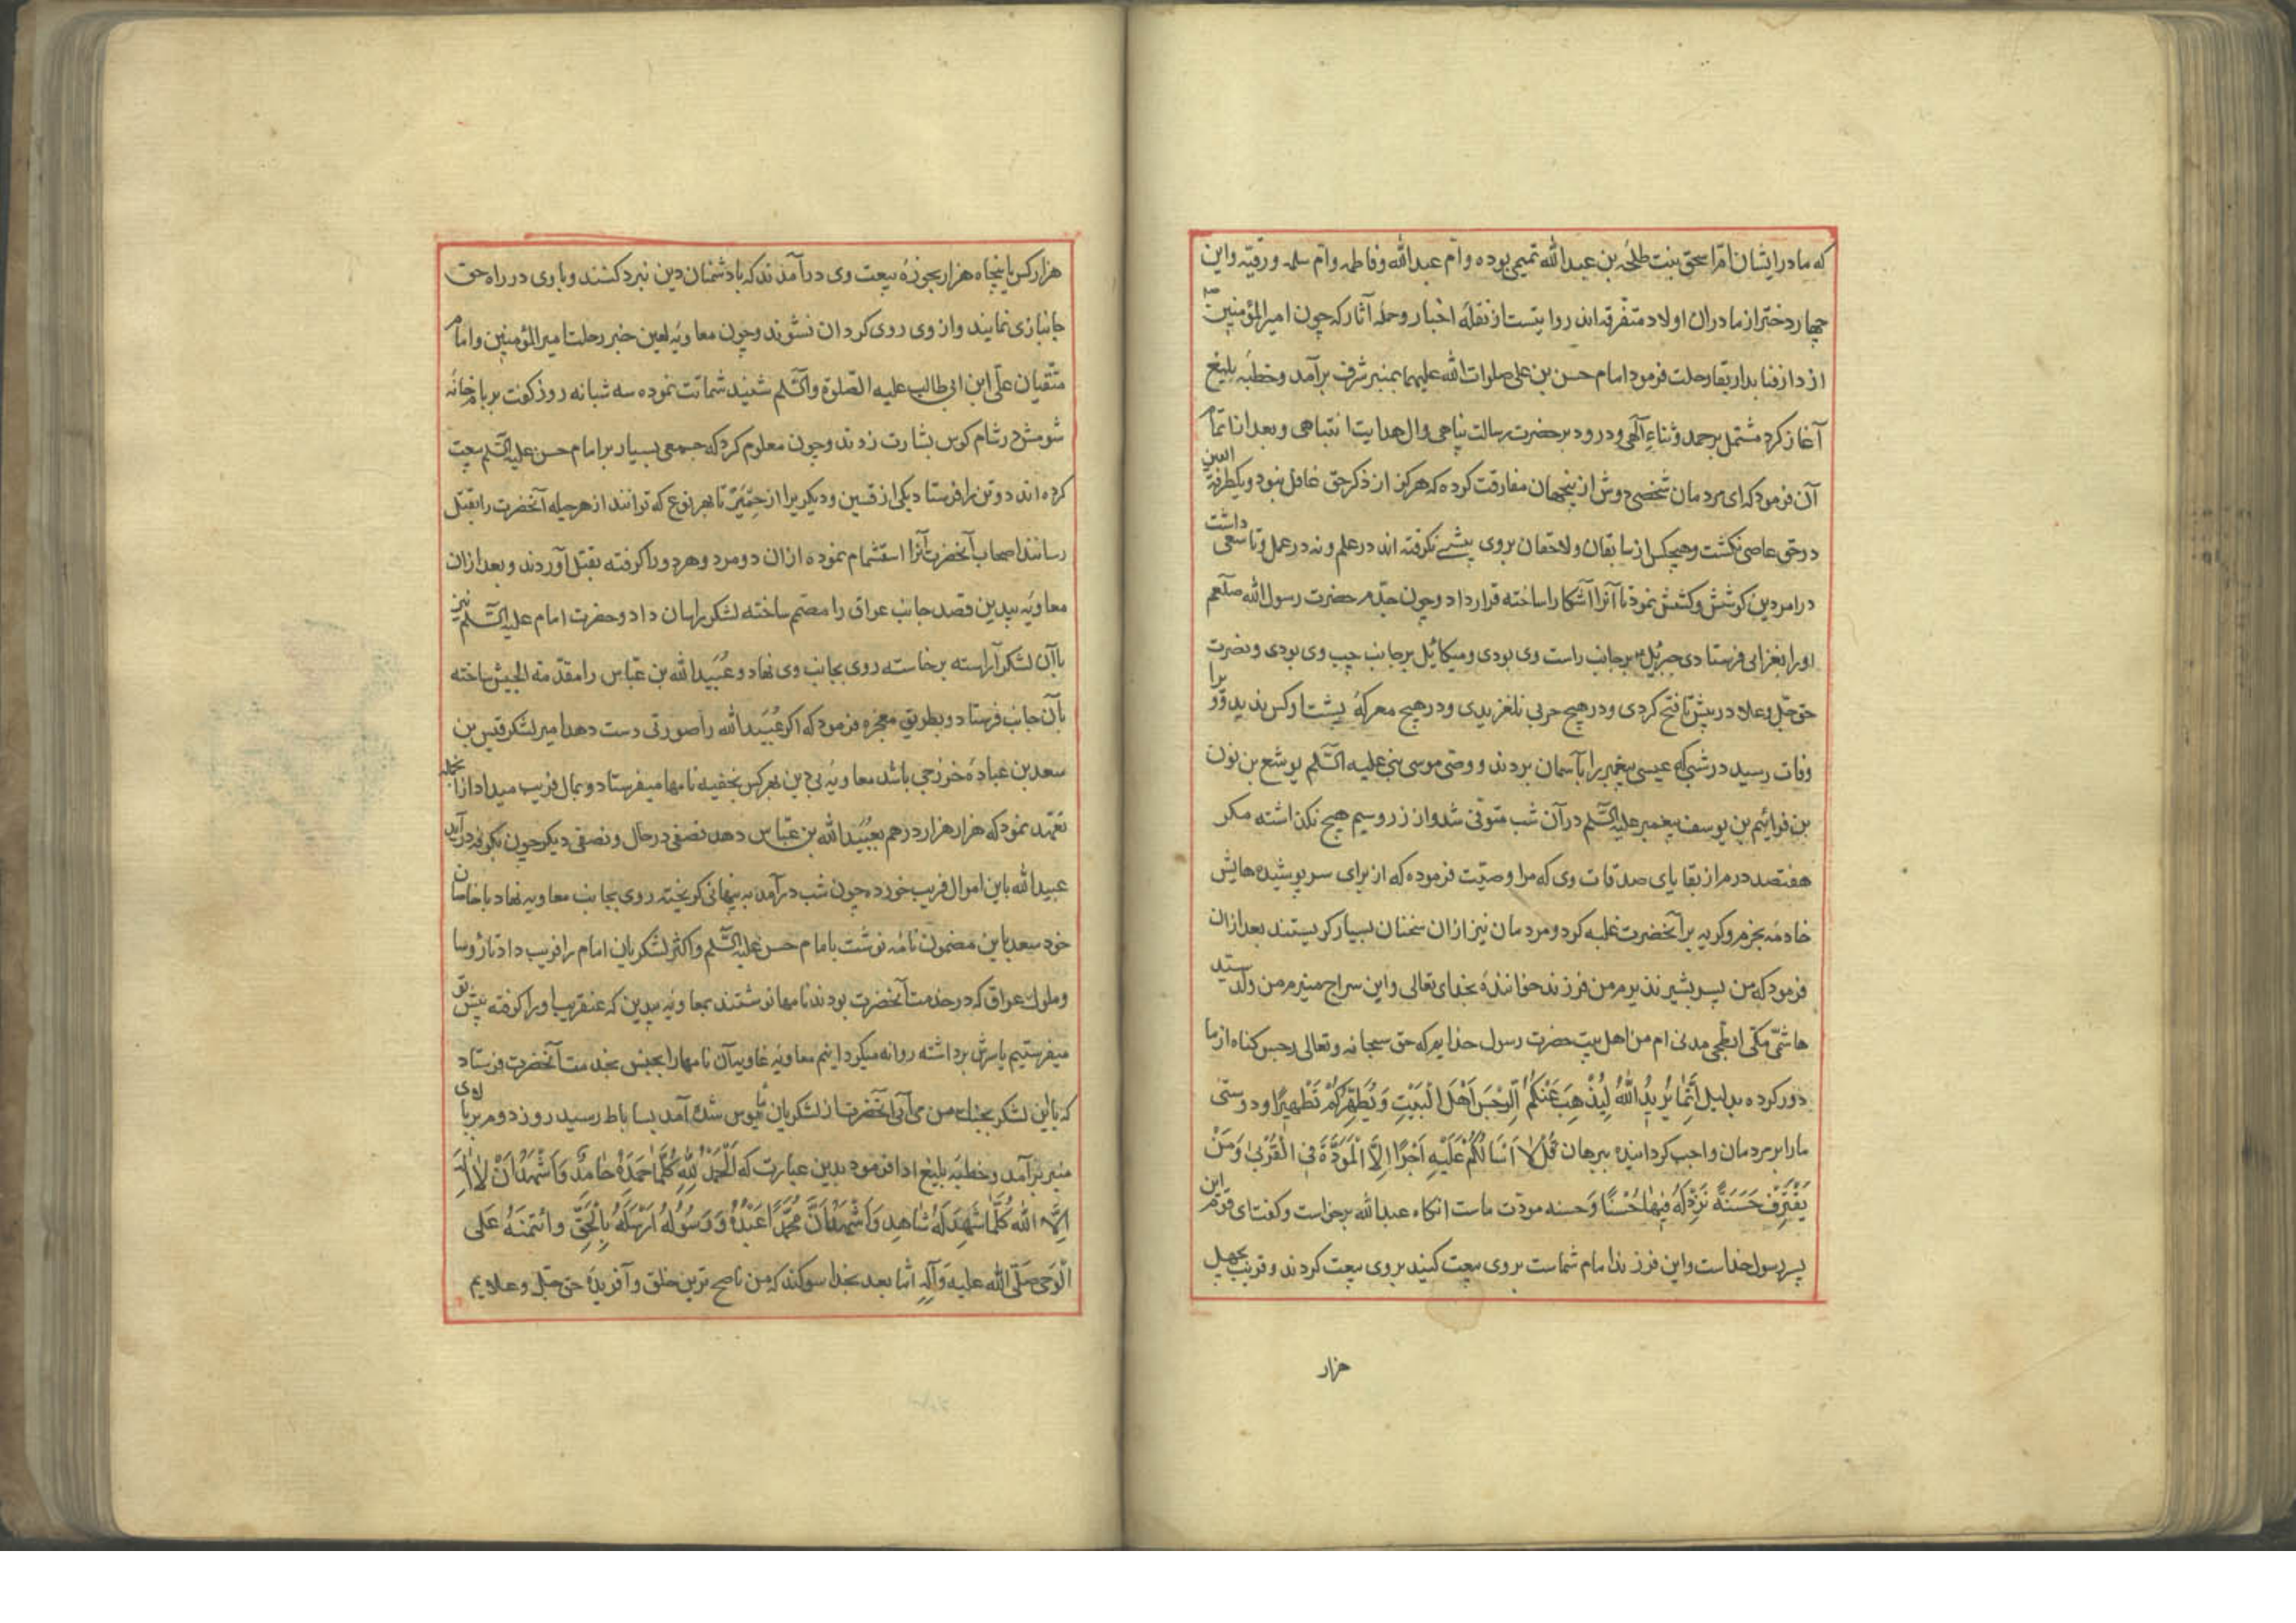 که مادر ایشان امّ اسحق بنت طلحه بن عبدالله تمیمی بوده و امّ عبدالله و فاطمه و امّ سلمه و رقیّه و این
چهار دختر از مادران اولاد متفرقه‌اند روایتست از نقلهٔ اخبار و حملهٔ آثار که چون امیرالمؤمنین
از دار فنا بدار بقا رحلت فرمود امام حسن بن علی صلوات الله علیهما بمنبر شرف برآمد و خطبهٔ بلیغ
آغاز کرد مشتمل بر حمد و ثناءِ آلهی و درود بر حضرت رسالت پناهی و ال هدایت انتباهی و بعد از اتمام
آن فرمود که ای مردمان شخصی دوش از ینجهان مفارقت کرده که هرکز از ذکر حق غافل نبود و بکطرفة العین
در حق عاصی نکشت و هیچکس از سابقان و لاحقان بر وی پیشی نکرفته اند در علم و نه در عمل و تا سعی داشت
در امر دین کوشش و کشش نمود تا آنرا آشکارا ساخته قرار داد و چون جدّم حضرت رسول الله صلعم
او را بغزایی فرستادی جبرئیل بر جانب راست وی بودی و میکائیل بر جانب چپ وی بودی و نصرت
حق جلّ و علا در پیش تا فتح کردی و در هیچ حربی نلغزیدی و در هیچ معرکهٔ پشت او کس ندید و او را
وفات رسید در شبی که عیسی پیغمبر را بآسمان بردند و وصّی موسی نبی علیه السّلم یوشع بن نون
بن فرائیم بن یوسف پیغمبر علیه السّلم در آن شب متوفی شد و از زر و سیم هیچ نکذاشته مکر
هفتصد درم از بقایای صدقات وی که مرا وصیّت فرموده که از برای سرپوشیده هایش
خادمه بخرم و کریه بر آنحضرت غلبه کرد و مردمان نیز از ان سخنان بسیار کریستند بعد از ان
فرمود که من پسر بشیر نذیرم من فرزند خوانندهٔ بخدای تعالی و این سراج منیرم من ولد سیّد
هاشمی مکّی ابطحی مدنی ام من اهل بیت حضرت رسول خدایم که حق سبحانه و تعالی رجس کناه از ما
دور کرده بدلیل اِنَّمٰا یُرِیدُ اللّٰهُ لِیُذْهِبَ عَنْکُمُ الرِّجْسَ اَهْلَ الْبَیْتِ وَیُطَهِّرَکُمْ تَطْهِیرًا و دوستی
ما را بر مردمان واجب کردانیده ببرهان قُلْ لٰا اَسْاَلُکُمْ عَلَیْهِ اَجْرًا اِلَّا الْمَوَدَّةَ فِی الْقُرْبیٰ وَمَنْ
یَقْتَرِفْ حَسَنَةً نَزِدْ لَهُ فِیهٰا حُسْنًا وَ حسنه مودّت ماست انکاه عبدالله برخواست و کفت ای قوم این
پسر رسول خداست و این فرزند امام شماست بر وی بیعت کنید بر وی بیعت کردند و قریب بچهل
هزار
هزار کس یا پنجاه هزار بحوزهٔ بیعت وی درآمدند که با دشمنان دین نبرد کنند و با وی در راه حق
جانبازی نمایند و از وی روی کردان نشوند و چون معاویهٔ لعین خبر رحلت امیرالمؤمنین و امام
متّقیان علّی ابن ابی طالب علیه الصّلوة والسّلم شنید شماتت نموده سه شبانه روز کفت بر بام خانهٔ
شومش در شام کوس بشارت زدند و چون معلوم کرد که جمعی بسیار بر امام حسن علیه السّلم بیعت
کرده اند دو تن را فرستاد یکی از قسین و دیکریرا از حِمْیَر تا بهر نوع که توانند از هر حیله آنحضرت را بقتل
رسانند اصحاب آنحضرت آنرا استشمام نموده از ان دو مرد و هر دو را کرفته بقتل آوردند و بعد از ان
معاویه بیدین قصد جانب عراق را مصمّم ساخته لشکر را سان داد و حضرت امام علیه السّلم نیز
با آن لشکر آراسته برخاسته روی بجانب وی نهاد و عُبَیدالله بن عبّاس را مقدّمة الجیش ساخته
بآن جانب فرستاد و بطریق معجزه فرمود که اکر عُبَیدالله را صورتی دست دهد امیر لشکر قیس بن
سعد بن عباده خزرجی باشد معاویهٔ بی دین بهر کس بخفیه نامها میفرستاد و بمال فریب میداد از آنجمله
تعهّد نمود که هزار هزار درهم بعُبَیدالله بن عبّاس دهد نصفی در حال و نصفی دیکر چون بکوفه درآید
عبیدالله باین اموال فریب خورده چون شب درآمد به پنهانی کریخته روی بجانب معاویه نهاد با خاصان
خود سعد باین مضمون نامه نوشت بامام حسن علیه السّلم و اکثر لشکریان امام را فریب داد تا رؤسا
و ملوک عراق که در خدمت آنحضرت بودند نامها نوشتند بمعاویهٔ بیدین که عنقریب او را کرفته پیش تو
میفرستیم یا سرش برداشته روانه میکردانیم معاویهٔ غاویه آن نامهارا بجنس بخدمت آنحضرت فرستاد
که باین لشکر بجنک من می آئی آنحضرت از لشکریان مأیوس شده آمد بساباط رسید روز دوم بر بالای
منبر برآمد و خطبهٔ بلیغ ادا فرمود بدین عبارت که اَلْحَمْدُ لِلّٰهِ کُلَّمٰا حَمَدَهُ حٰامِدٌ وَاَشْهَدُ اَنْ لٰا اِلٰهَ
اِلَّا اللّٰه کُلَّمٰا شَهِدَ لَهُ شٰاهِد وَاَشْهَدُ اَنَّ مُحَمَّدًا عَبْدُهُ وَرَسُولُهُ اَرْسَلَهُ بِالْحَقِّ وائتمنَهُ عَلی
الْوَحی صَلّی الله علیه وَآلِهِ امّا بعد بخدا سوکند که من ناصح ترین خلق و آفریدهٔ حق جلّ و علایم